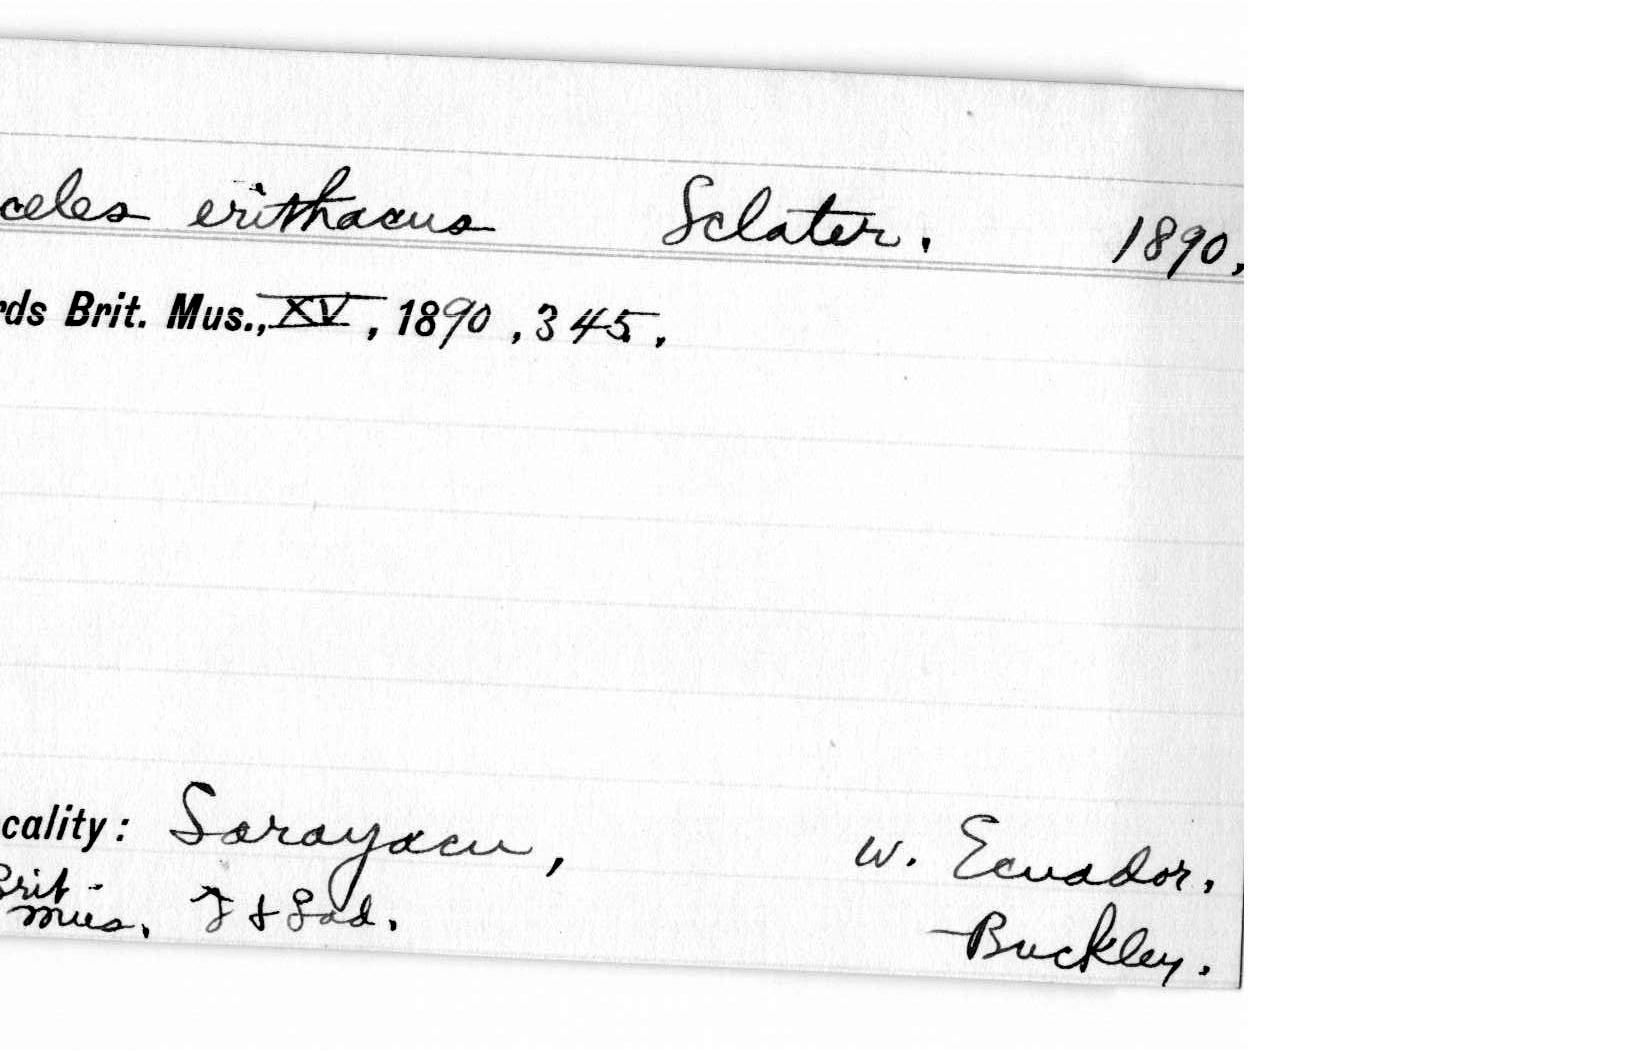 celes erithacus Sclater. 1890,
rds Brit. Mus., XV, 1890, 345.
cality: Sarayacu, W. Ecuador.
Brit. Mus. & Gad. Buckley.